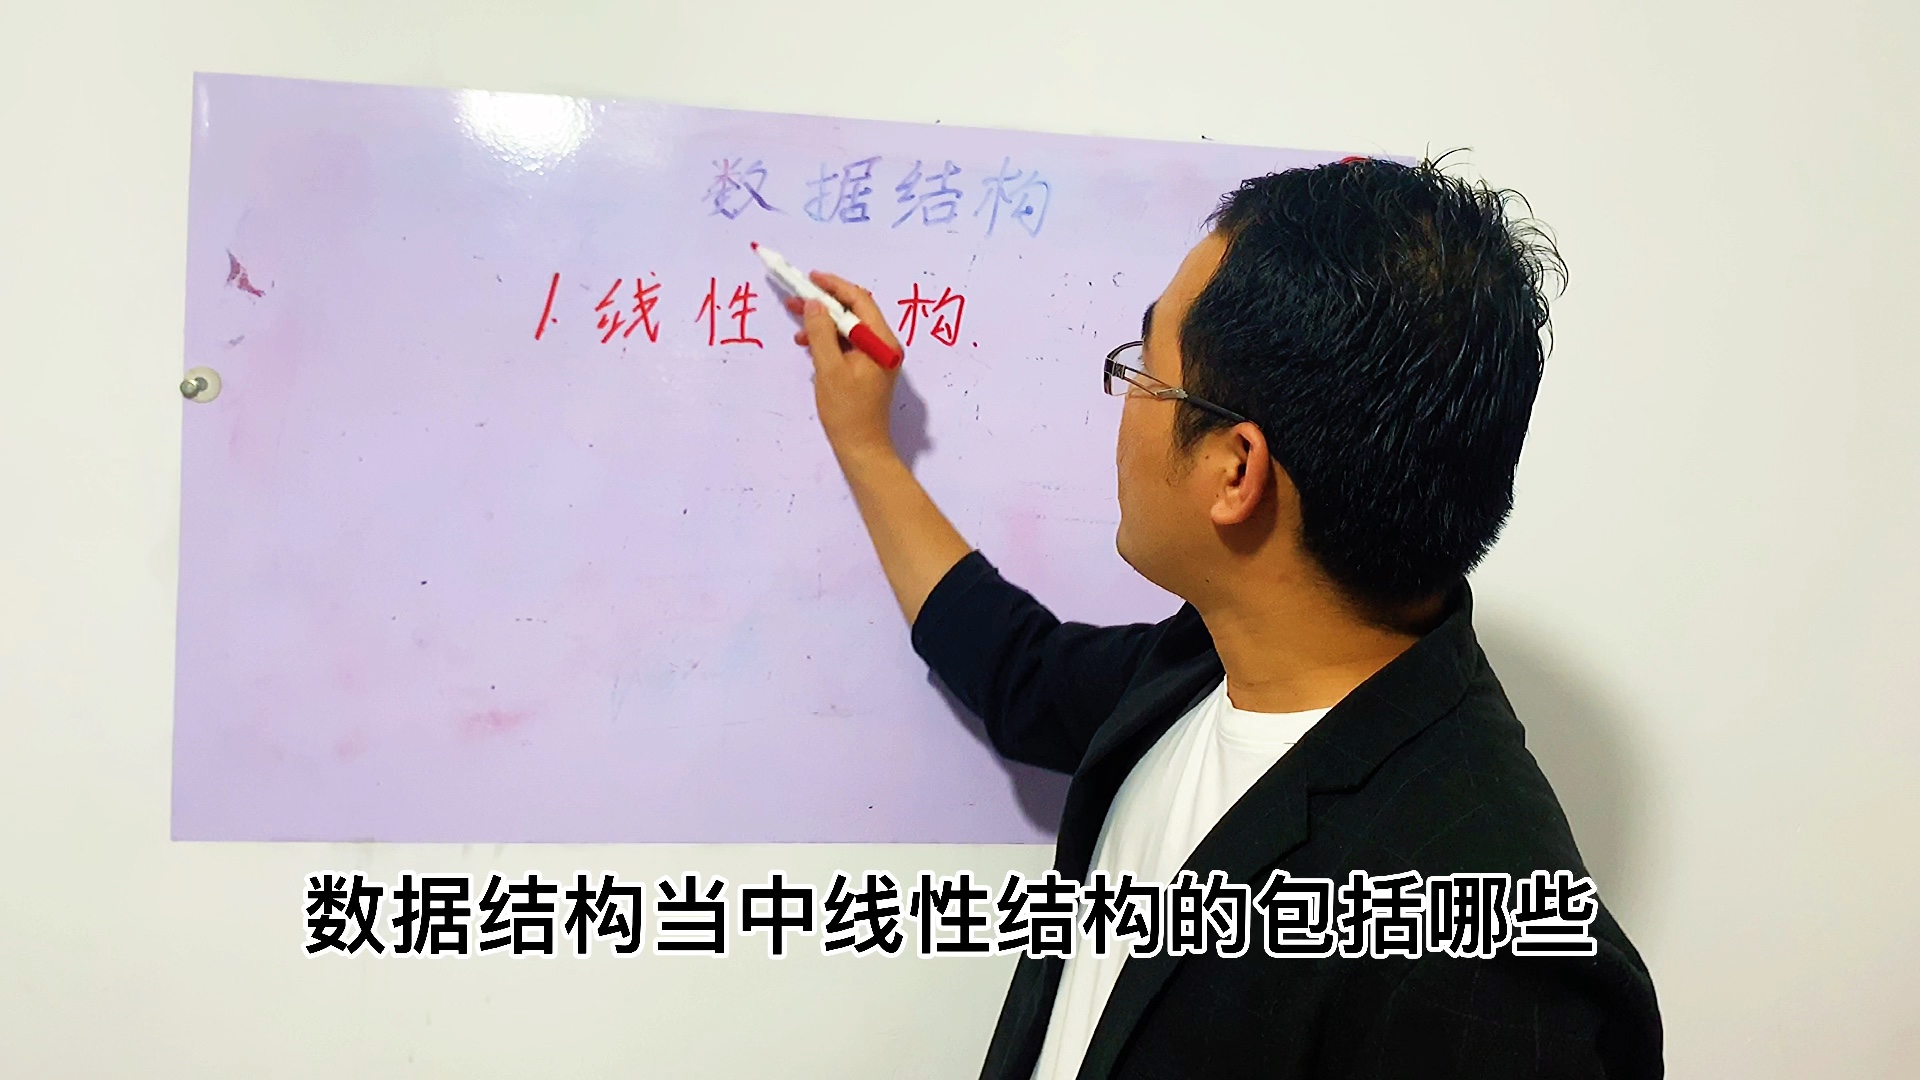 数据结构
1.线性 构.
数据结构当中线性结构的包括哪些